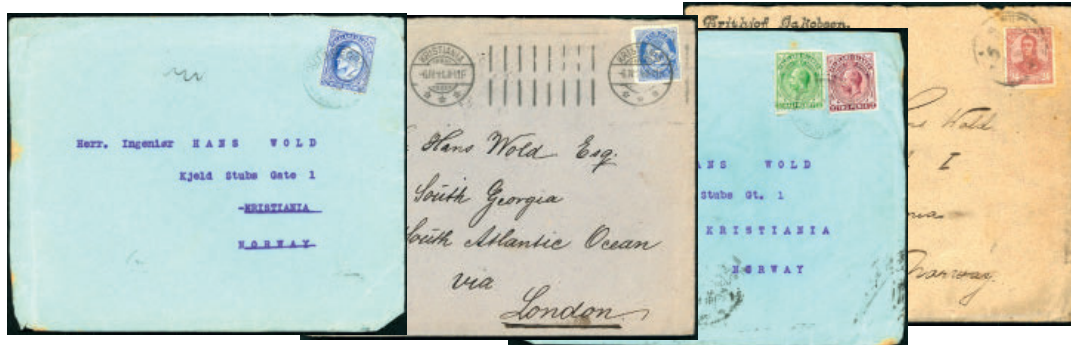 Herr. Ingeniør HANS WOLD
Kjeld Stubs Gate 1
-KRISTIANIA
NORWAY
KRISTIANIA
KRISTIANIA
Hans Wold Esq.
South Georgia
South Atlantic Ocean
via
London
HALF PENNY
TWO PENCE
ANS WOLD
Stubs Gt. 1
KRISTIANIA
NORWAY
Frithiof Jakobsen.
Wold
I
Norway.